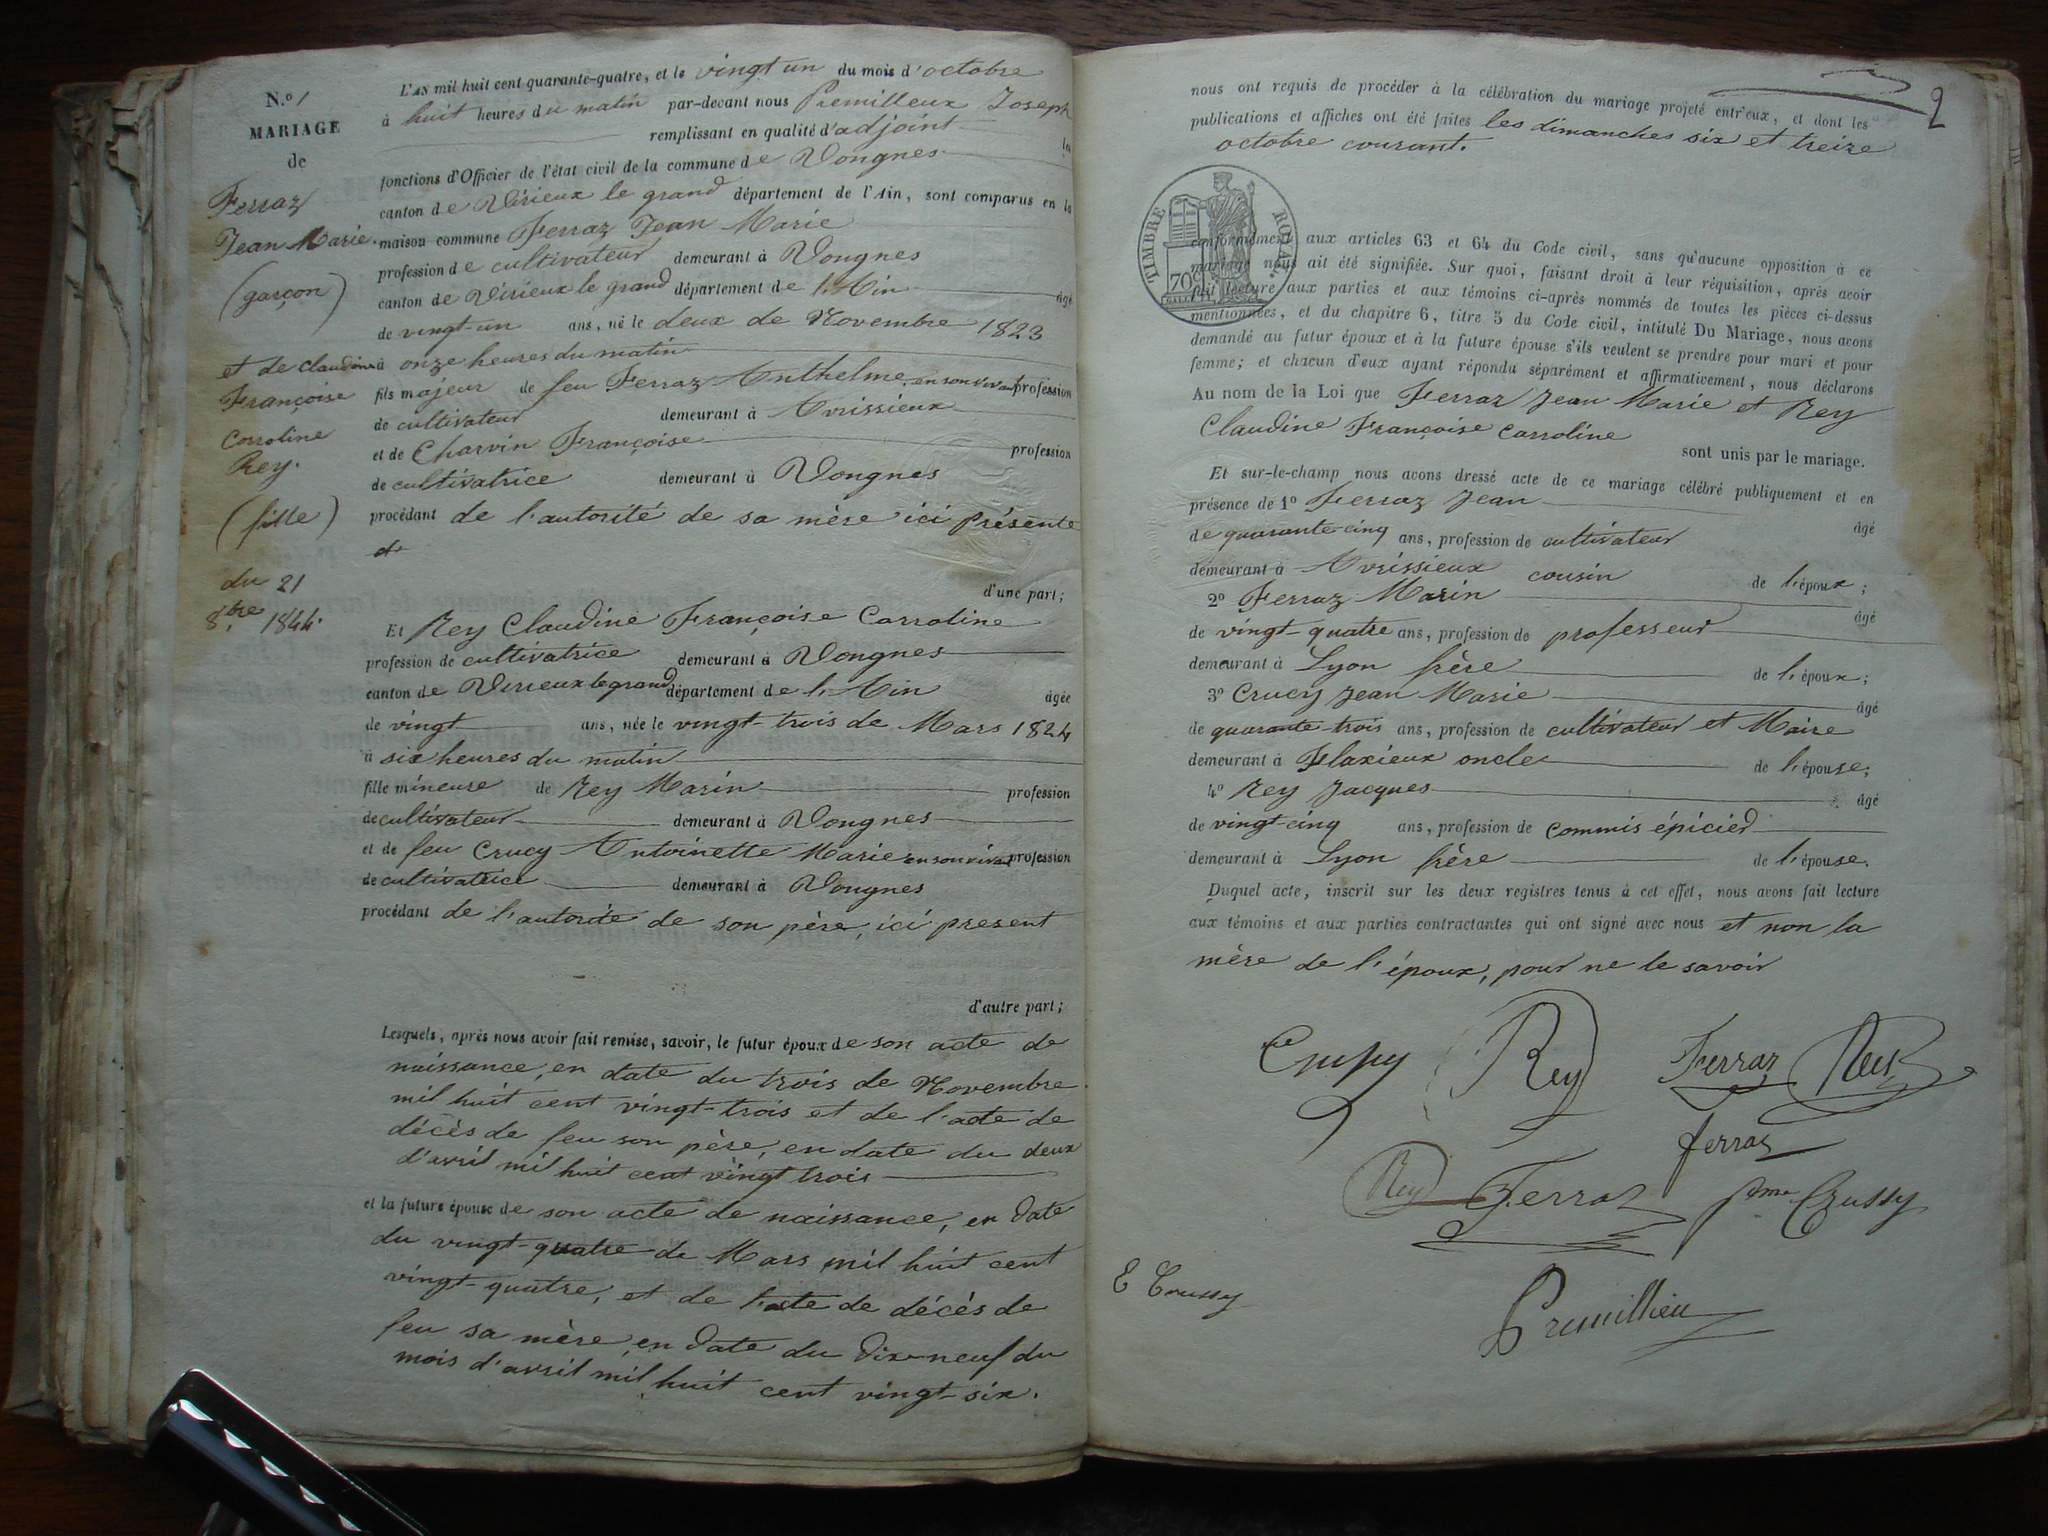 N.o 1
MARIAGE
de
Ferraz
Jean Marie.
(garçon)
et de Claudine
Françoise
Carroline
Rey.
(fille)
du 21
8.bre 1844.
L'AN mil huit cent quarante-quatre, et le vingt un du mois d'octobre
à huit heures du matin par-devant nous Premilleux Joseph
remplissant en qualité d'adjoint les
fonctions d'Officier de l'état civil de la commune de Vongnes
canton de Virieux le grand département de l'Ain, sont comparus en la
maison commune Ferraz Jean Marie
profession de cultivateur demeurant à Vongnes
canton de Virieux le grand département de l'Ain âgé
de vingt-un ans, né le deux de Novembre 1823
à onze heures du matin
fils majeur de feu Ferraz Anthelme, en son vivant profession
de cultivateur demeurant à Avrissieux
et de Charvin Françoise profession
de cultivatrice demeurant à Vongnes
procédant de l'autorité de sa mère ici présente
d'une part;
Et Rey Claudine Françoise Carroline
profession de cultivatrice demeurant à Vongnes
canton de Virieux le grand département de l'Ain âgée
de vingt ans, née le vingt-trois de Mars 1824
à six heures du matin
fille mineure de Rey Marin profession
de cultivateur demeurant à Vongnes
et de feu Crucy Antoinette Marie en son vivant profession
de cultivatrice demeurant à Vongnes
procédant de l'autorité de son père, ici present
d'autre part;
Lesquels, après nous avoir fait remise, savoir, le futur époux de son acte de
naissance, en date du trois de Novembre
mil huit cent vingt-trois et de l'acte de
décès de feu son père, en date du deux
d'avril mil huit cent vingt trois
et la future épouse de son acte de naissance, en date
du vingt-quatre de Mars mil huit cent
vingt-quatre, et de l'acte de décès de
feu sa mère, en date du dix-neuf du
mois d'avril mil huit cent vingt-six.
2
nous ont requis de procéder à la célébration du mariage projeté entr'eux, et dont les
publications et affiches ont été faites les dimanches six et treize
octobre courant.
TIMBRE ROYAL.
70c
conformément aux articles 63 et 64 du Code civil, sans qu'aucune opposition à ce
mariage nous ait été signifiée. Sur quoi, faisant droit à leur réquisition, après avoir
fait lecture aux parties et aux témoins ci-après nommés de toutes les pièces ci-dessus
mentionnées, et du chapitre 6, titre 5 du Code civil, intitulé Du Mariage, nous avons
demandé au futur époux et à la future épouse s'ils veulent se prendre pour mari et pour
femme; et chacun d'eux ayant répondu séparément et affirmativement, nous déclarons
Au nom de la Loi que Ferraz Jean Marie et Rey
Claudine Françoise Carroline
sont unis par le mariage.
Et sur-le-champ nous avons dressé acte de ce mariage célébré publiquement et en
présence de 1o Ferraz Jean âgé
de quarante-cinq ans, profession de cultivateur
demeurant à Avrissieux cousin de l'époux;
2o Ferraz Marin âgé
de vingt-quatre ans, profession de professeur
demeurant à Lyon frère de l'époux;
3o Crucy Jean Marie âgé
de quarante-trois ans, profession de cultivateur et Maire
demeurant à Flaxieux oncle de l'épouse;
4o Rey Jacques âgé
de vingt-cinq ans, profession de commis épicier
demeurant à Lyon frère de l'épouse.
Duquel acte, inscrit sur les deux registres tenus à cet effet, nous avons fait lecture
aux témoins et aux parties contractantes qui ont signé avec nous et non la
mère de l'époux, pour ne le savoir
Rey Ferraz
ferraz
Rey Ferraz Crussy
E Crussy
Premillieu